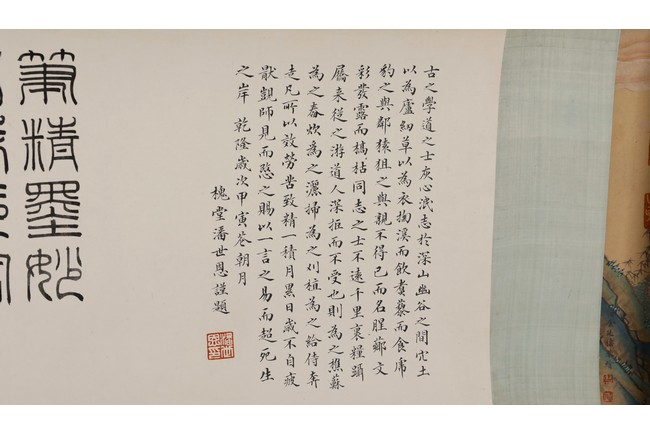 古之學道之士灰心泯志於深山幽谷之間穴土
以為廬紉草以為衣掬溪而飲煮藜而食虎
豹之與鄰猿狙之與親不得已而名腥薌文
彩發露而槁枯同志之士不遠千里裹糧躡
屩來從之游道人深拒而不受也則為之樵蘇
為之舂炊為之灑掃為之刈植為之給侍奔
走凡所以效勞苦致精一積月累日歲不自疲
厭覬師見而愍之賜以一言之易而超死生
之岸 乾隆歲次甲寅荅朝月
槐堂潘世恩謹題
筆精墨妙